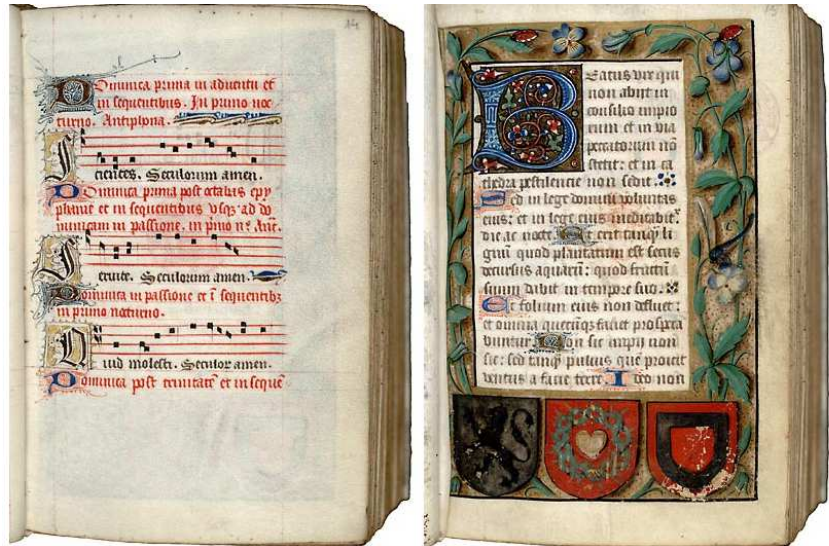 14
Dominica prima in aduentu et
in sequentibus. In primo noc
turno. Antiphona.
Scientes. Seculorum amen.
Dominica prima post octauas epy
phanie et in sequentibus vsqz ad do
minicam in passione. in pmo n°. Ant.
Seruite. Seculorum amen.
Dominica in passione et ī sequentibz
in primo nocturno.
uid molesti. Seculor amen.
Dominica post trinitatē et in seque
15
Beatus vir qui
non abijt in
consilio impio
rum et in via
peccatorum nō
stetit: et in ca
thedra pestilencie non sedit.
Sed in lege domini voluntas
eius: et in lege eius meditabit᷑
die ac nocte. Et erit tanqȝ li
gnū quod plantatum est secus
decursus aquarū: quod fructū
suum dabit in tempore suo.
Et folium eius non defluet:
et omnia quecūqȝ faciet prospera
buntur. Non sic impij non
sic: sed tanqȝ puluis quē proicit
ventus a facie terre. Ideo non